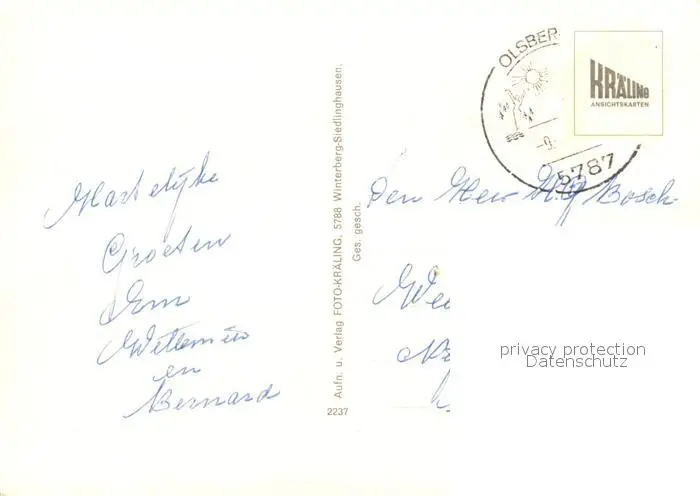 Hartelijke
Groeten
Om
Willemien
en
Bernard
Aufn. u. Verlag FOTO-KRÄLING, 5788 Winterberg-Siedlinghausen.
Ges. gesch.
2237
OLSBER
5787
KRÄLING
ANSICHTSKARTEN
Den Heer Bosch
privacy protection
Datenschutz